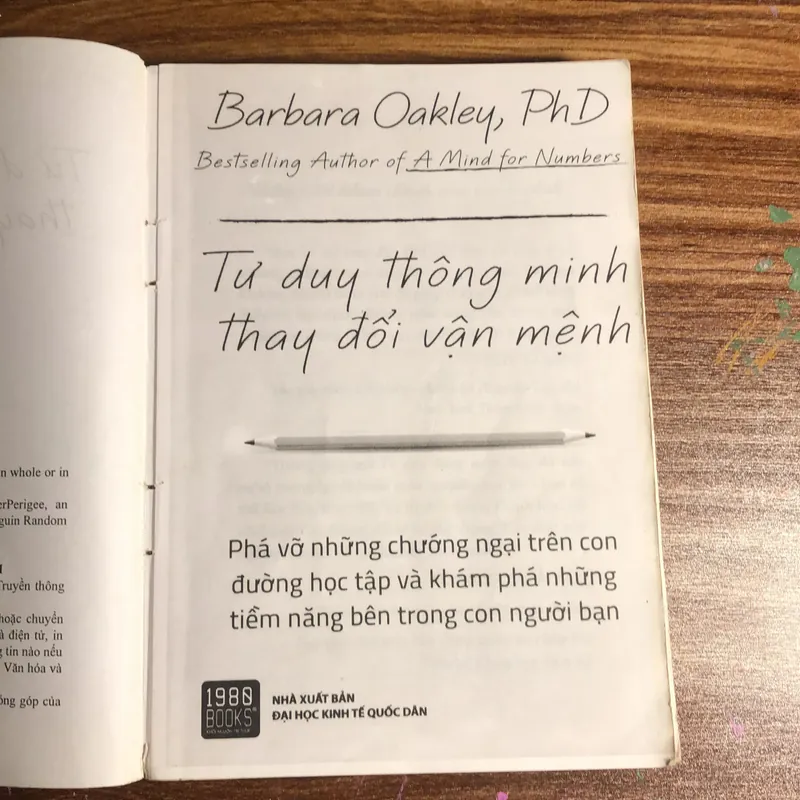 n whole or in
erPerigee, an
guin Random
Truyền thông
hoặc chuyển
à điện tử, in
g tin nào nếu
Văn hóa và
óng góp của
Barbara Oakley, PhD
Bestselling Author of A Mind for Numbers
Tư duy thông minh
thay đổi vận mệnh
Phá vỡ những chướng ngại trên con
đường học tập và khám phá những
tiềm năng bên trong con người bạn
1980
BOOKS
NHÀ XUẤT BẢN
ĐẠI HỌC KINH TẾ QUỐC DÂN